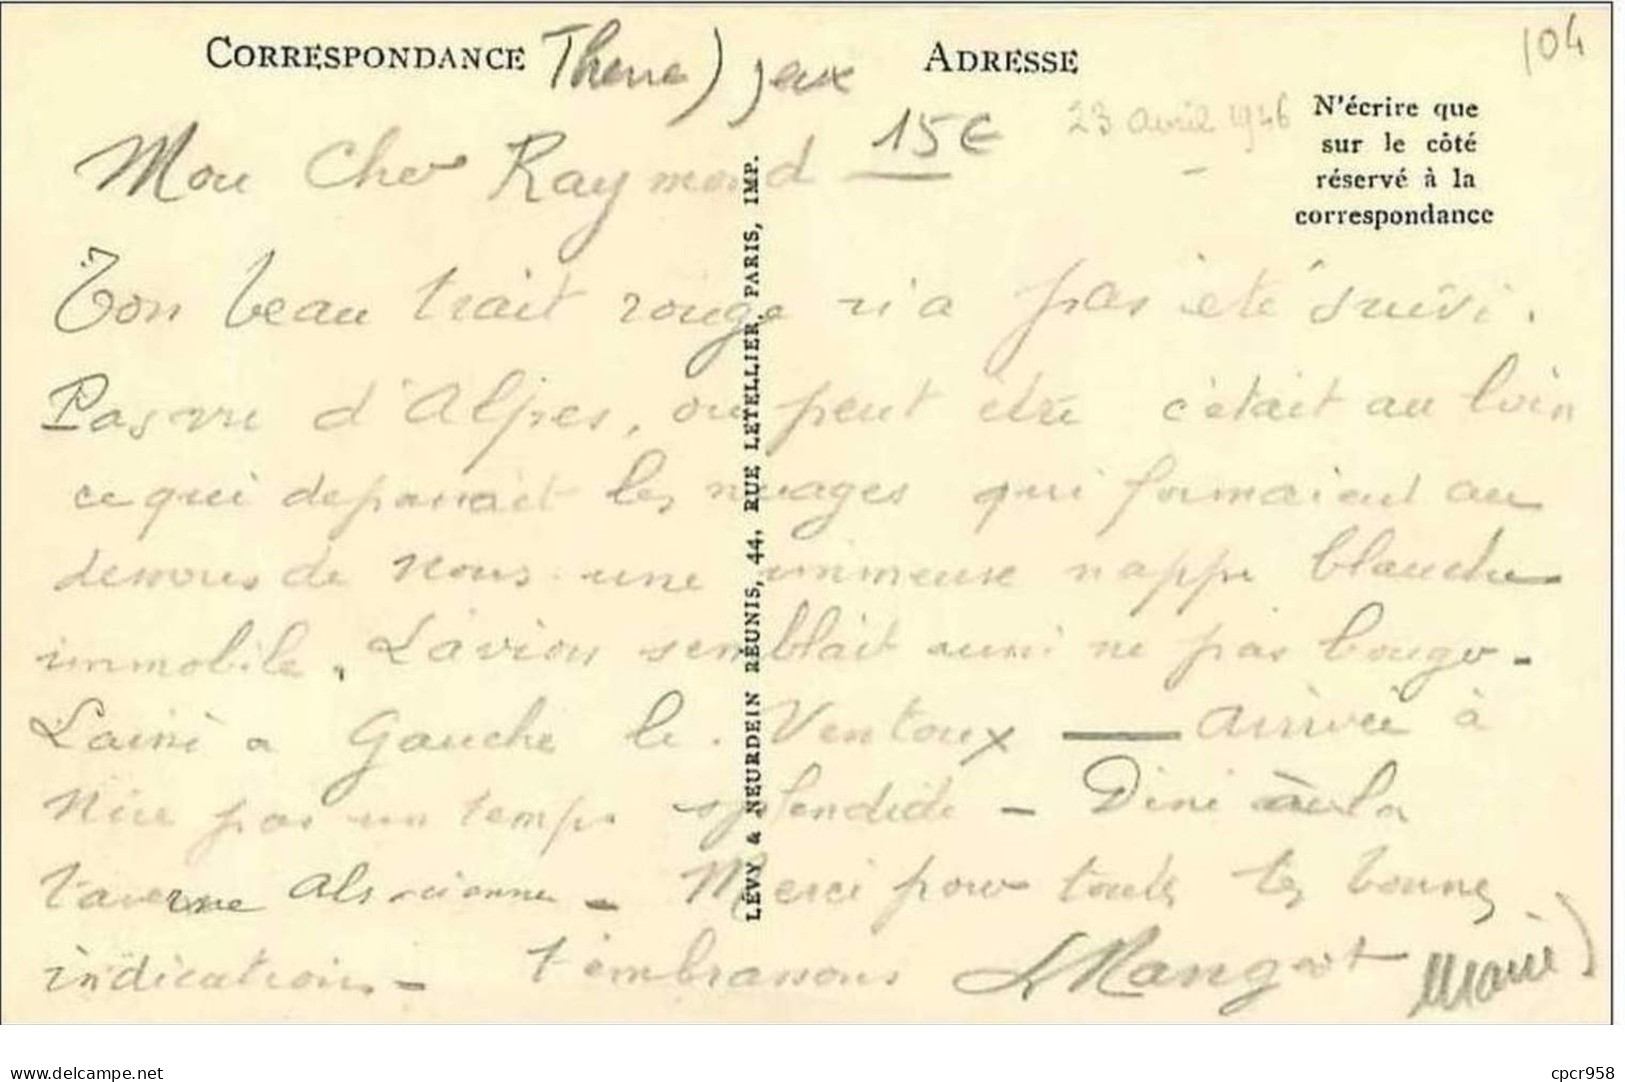 104
CORRESPONDANCE Theme) jeux ADRESSE
N'écrire que
sur le côté
réservé à la
correspondance
23 avril 1946
15€
Mon Cher Raymond
Ton beau trait rouge n'a pas été suivi.
Pas vu d'Alpes, ou peut être c'était au loin
ce qui depassait les nuages qui formaient au
dessous de nous une immense nappe blanche
immobile. L'avion semblait aussi ne pas bouger -
Laissé a Gauche le Ventoux — Arrivée à
Nice pas un temps splendide - Diné à la
taverne Alsacienne - Merci pour toutes tes bonnes
indications - t'embrassons Mangot Marie)
LÉVY & NEURDEIN RÉUNIS, 44, RUE LETELLIER, PARIS, IMP.
www.delcampe.net
cpcr958